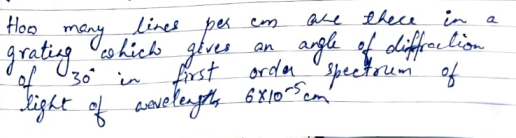 How many lines per cm are there in a
grating which gives an angle of diffraction
of 30° in first order spectrum of
light of wavelength 6x10⁻⁵cm